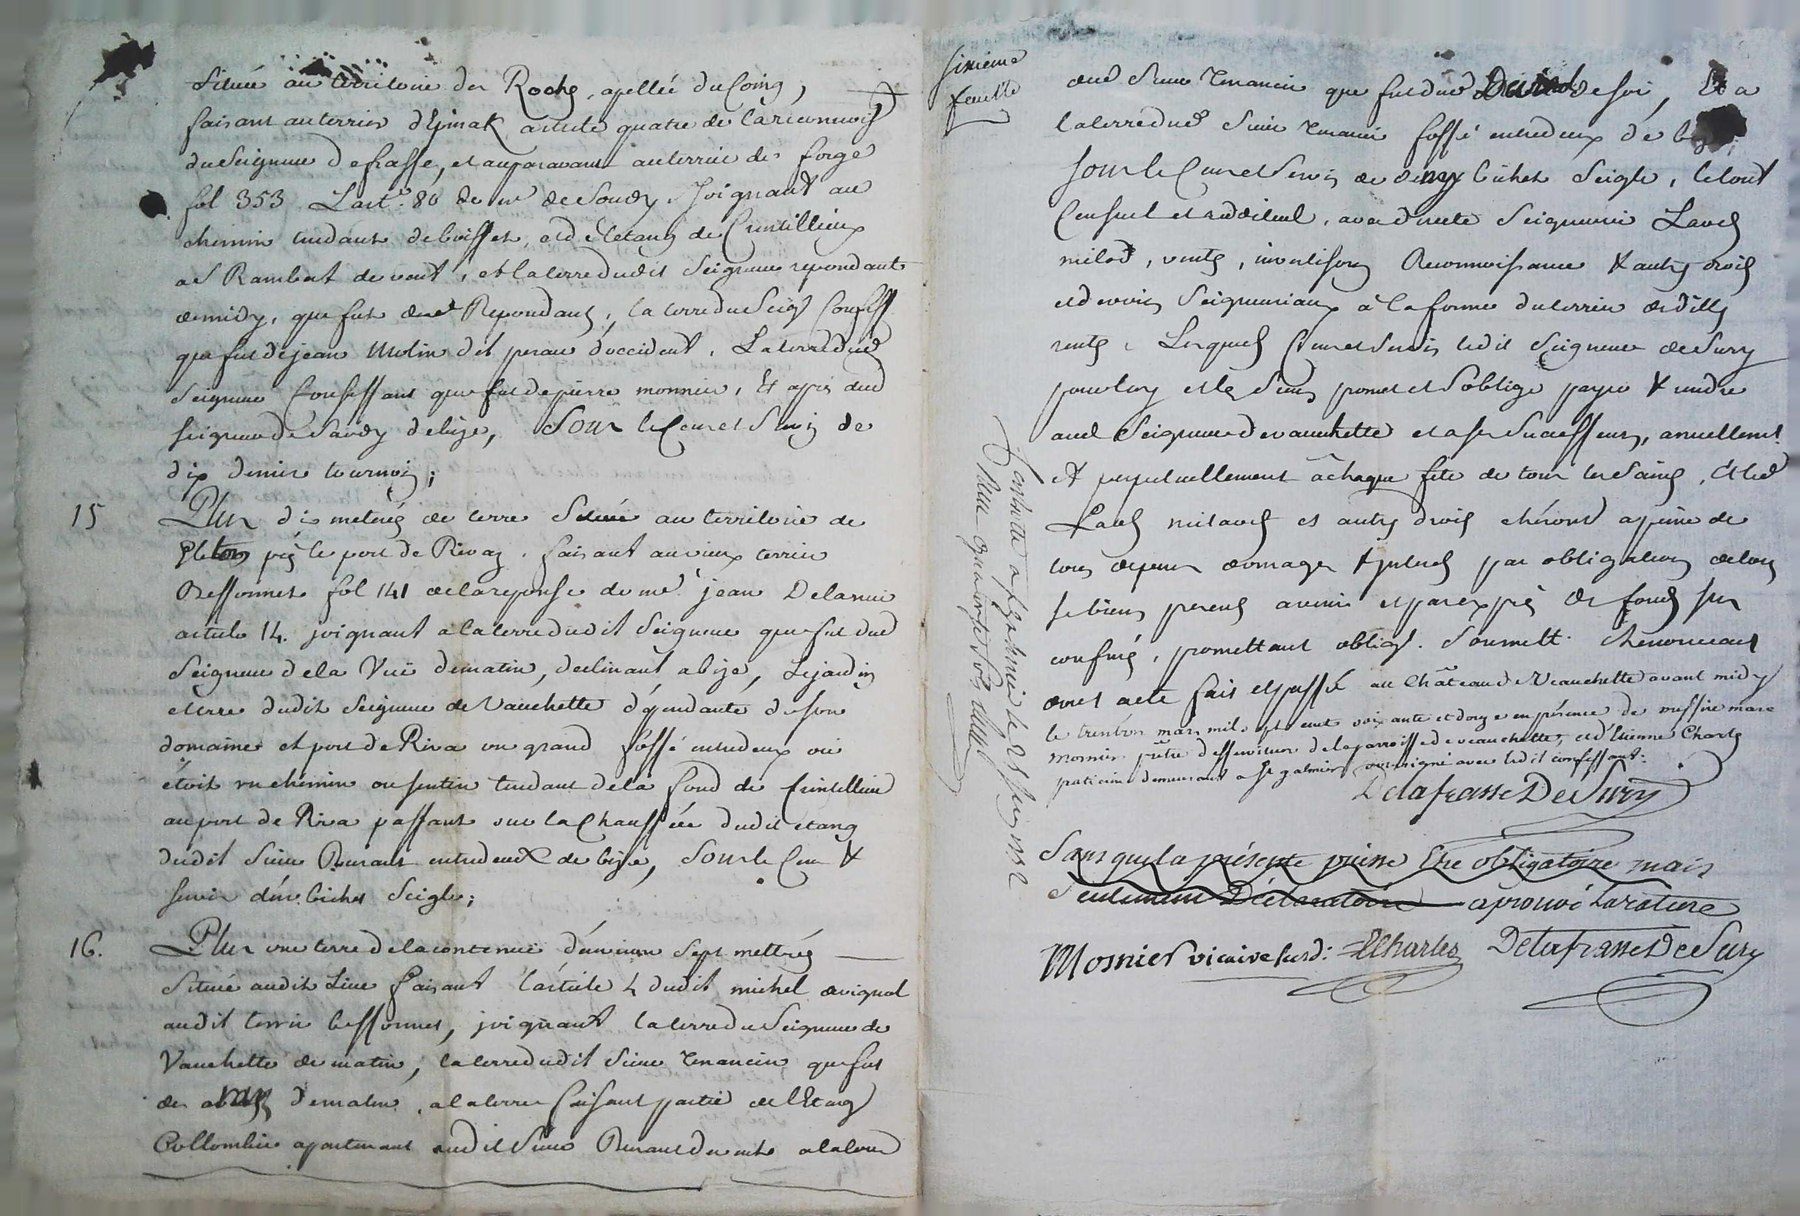 Située au territoire des Roche, apellée du Coing,
faisant au terrier d'Epinak article quatre de la reconnoiss
du Seigneur de frasse, et auparavant au terrier des forge
fol 353 L'art. 80 de mr de Soudy. Joignant au
chemin tendant de boisset, et de l'etang de Crintillieux
a St Rambert de vent, et la terre dudit Seigneur repondant
de midy, que fut dud Repondant, la terre du Seigr Confess
que fut de jean Molin dit perau d'occident, La terre dud
Seigneur Confessant que fut de pierre monnier, Et apis dud
seigneur de Saudy de bize, Sous le Cens et Servis de
dix denier tournois;
15 Plus dix meterés de terre Située au territoire de
près le port de Rivaz. faisant au vieux terrier
Bessonnet fol 141 de la reponse de me jean Delarue
article 14. joignant a la terre dudit Seigneur que fut dud
Seigneur de la Vuë de matin, declinant a bize, Le jardin
et terre dudit Seigneur de Vauchette dépendante de son
domaine et port de Riva un grand fossé entredeux ou
étoit un chemin ou sentier tendant de la fond de Crintillieu
au port de Riva passant sur la Chaussée dudit etang
dudit Sieur Ranant entredeux de bize, Sous le Cens &
servis d'un bichet Seigle;
16. Plus une terre de la contenue d'environ Sept mettrés
Située audit Lieu faisant l'article 4 dudit michel avignol
audit terrier bessonnet, joignant la terre du Seigneur de
Vauchette de matin, la terre dudit Sieur Tenancier que fut
des de matin, a la terre faisant partie de l'Etang
Collombier apartenant audit Sieur Ranant de vente a la terre
sixieme
feuille
dud Sieur Tenancier que fut dud David de soir, Et a
la terre dud Sieur Tenancier fossé entredeux de
Sous le Cens et Servis de demy bichet Seigle, le tout
Censuel et rudituel, avec directe Seigneurie Laods
milods, vente, investison Reconnoissance & autres droits
et devoirs Seigneuriaux à la forme du terrier et dittes
rente, Lesquels Cens et Servis ledit Seigneur de Sury
pour luy et les Siens promet et S'oblige payer & rendre
aud Seigneur de vauchette et a ses Successeurs, annuellement
et perpetuellement à chaque fete de tous les Saints, Et les
Laods milaods et autres droits echéront a peine de
tous depens domages & interets par obligation de tous
se biens presents avenir et par exprès des fonds sus
confinés, promettant obligt. Soumett. & Renonceant
dont acte fait et passé au Château de Veauchette avant midy
le trente un mars mil sept cent soixante et douze en présence de messire marc
mosnier prêtre desserviteur de la parroisse de veauchette, et d'Etienne Charles
praticien demeurant a St galmier soussigné avec ledit confessant.
Delafrasse De Sury
Sans que la présente puisse Etre obligatoire mais
Seulement Déclaratoire aprouvé la rature
Mosnier vicaire susd: ECharles Delafrasse De Sury